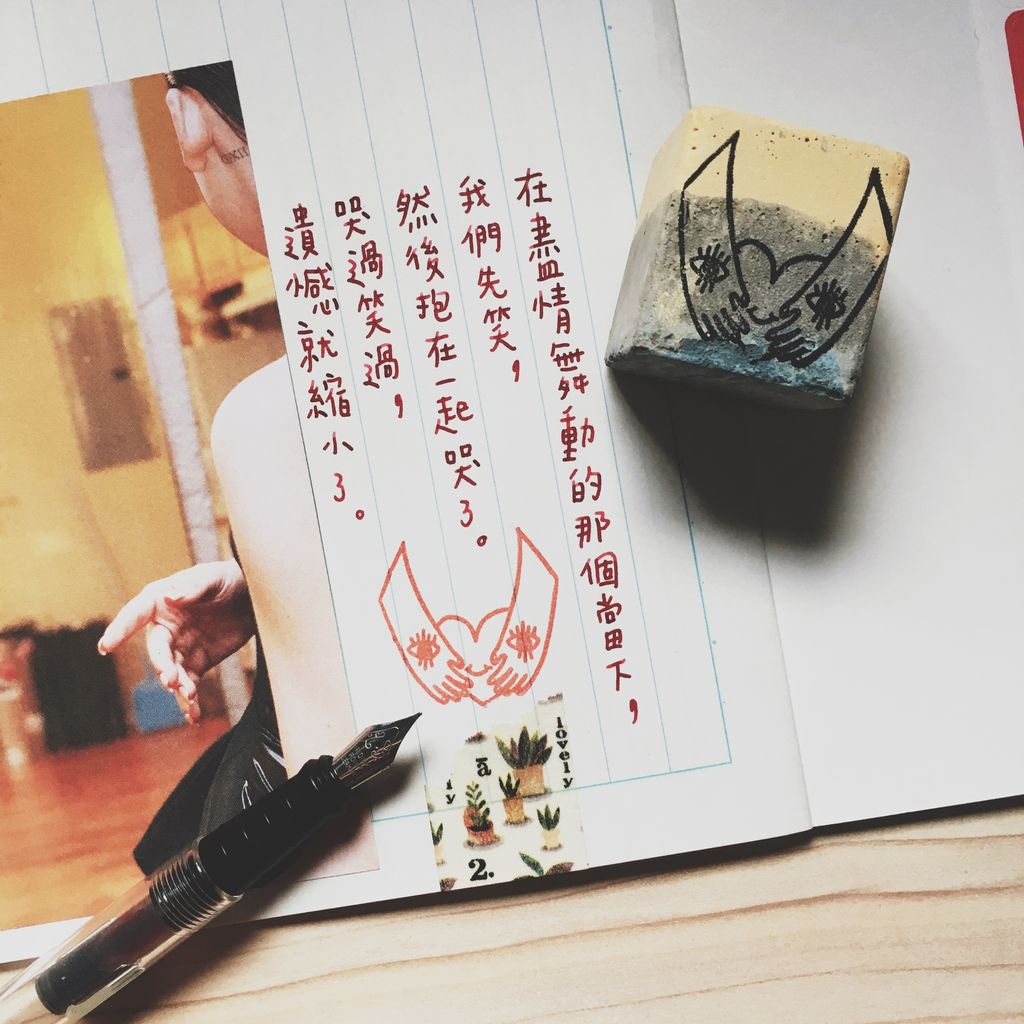 在盡情舞動的那個當下，
我們先笑，
然後抱在一起哭了。
哭過笑過，
遺憾就縮小了。
lovely
ly
ā
2.